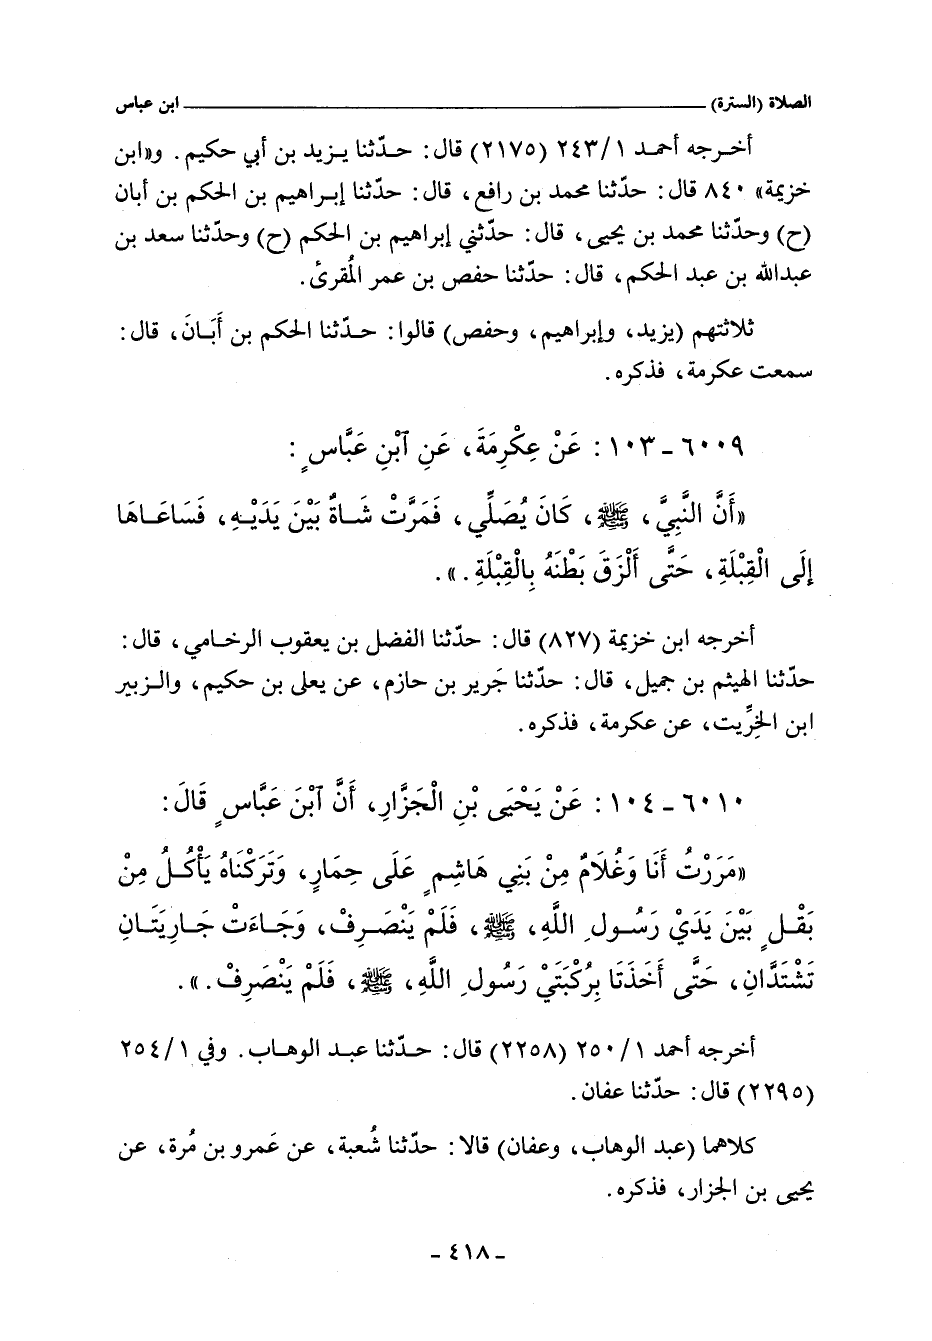 الصلاة (السترة) ابن عباس
أخرجه أحمد ٢٤٣/١ (٢١٧٥) قال: حدّثنا يزيد بن أبي حكيم. و«ابن
خزيمة» ٨٤٠ قال: حدّثنا محمد بن رافع، قال: حدّثنا إبراهيم بن الحكم بن أبان
(ح) وحدّثنا محمد بن يحيى، قال: حدّثني إبراهيم بن الحكم (ح) وحدّثنا سعد بن
عبدالله بن عبد الحكم، قال: حدّثنا حفص بن عمر المُقرئ.
ثلاثتهم (يزيد، وإبراهيم، وحفص) قالوا: حدّثنا الحكم بن أَبَانَ، قال:
سمعت عكرمة، فذكره.
٦٠٠٩ - ١٠٣: عَنْ عِكْرِمَةَ، عَنِ ٱبْنِ عَبَّاسٍ:
«أَنَّ النَّبِيَّ، ﷺ، كَانَ يُصَلِّي، فَمَرَّتْ شَاةٌ بَيْنَ يَدَيْهِ، فَسَاعَاهَا
إِلَى الْقِبْلَةِ، حَتَّى أَلْزَقَ بَطْنَهُ بِالْقِبْلَةِ.».
أخرجه ابن خزيمة (٨٢٧) قال: حدّثنا الفضل بن يعقوب الرخامي، قال:
حدّثنا الهيثم بن جميل، قال: حدّثنا جَرير بن حازم، عن يعلى بن حكيم، والزبير
ابن الخِرِّيت، عن عكرمة، فذكره.
٦٠١٠ - ١٠٤: عَنْ يَحْيَى بْنِ الْجَزَّارِ، أَنَّ ٱبْنَ عَبَّاسٍ قَالَ:
«مَرَرْتُ أَنَا وَغُلَامٌ مِنْ بَنِي هَاشِمٍ عَلَى حِمَارٍ، وَتَرَكْنَاهُ يَأْكُلُ مِنْ
بَقْلٍ بَيْنَ يَدَيْ رَسُولِ اللَّهِ، ﷺ، فَلَمْ يَنْصَرِفْ، وَجَاءَتْ جَارِيَتَانِ
تَشْتَدَّانِ، حَتَّى أَخَذَتَا بِرُكْبَتَيْ رَسُولِ اللَّهِ، ﷺ، فَلَمْ يَنْصَرِفْ.».
أخرجه أحمد ٢٥٠/١ (٢٢٥٨) قال: حدّثنا عبد الوهاب. وفي ٢٥٤/١
(٢٢٩٥) قال: حدّثنا عفان.
كلاهما (عبد الوهاب، وعفان) قالا: حدّثنا شُعبة، عن عَمرو بن مُرة، عن
يحيى بن الجزار، فذكره.
- ٤١٨ -